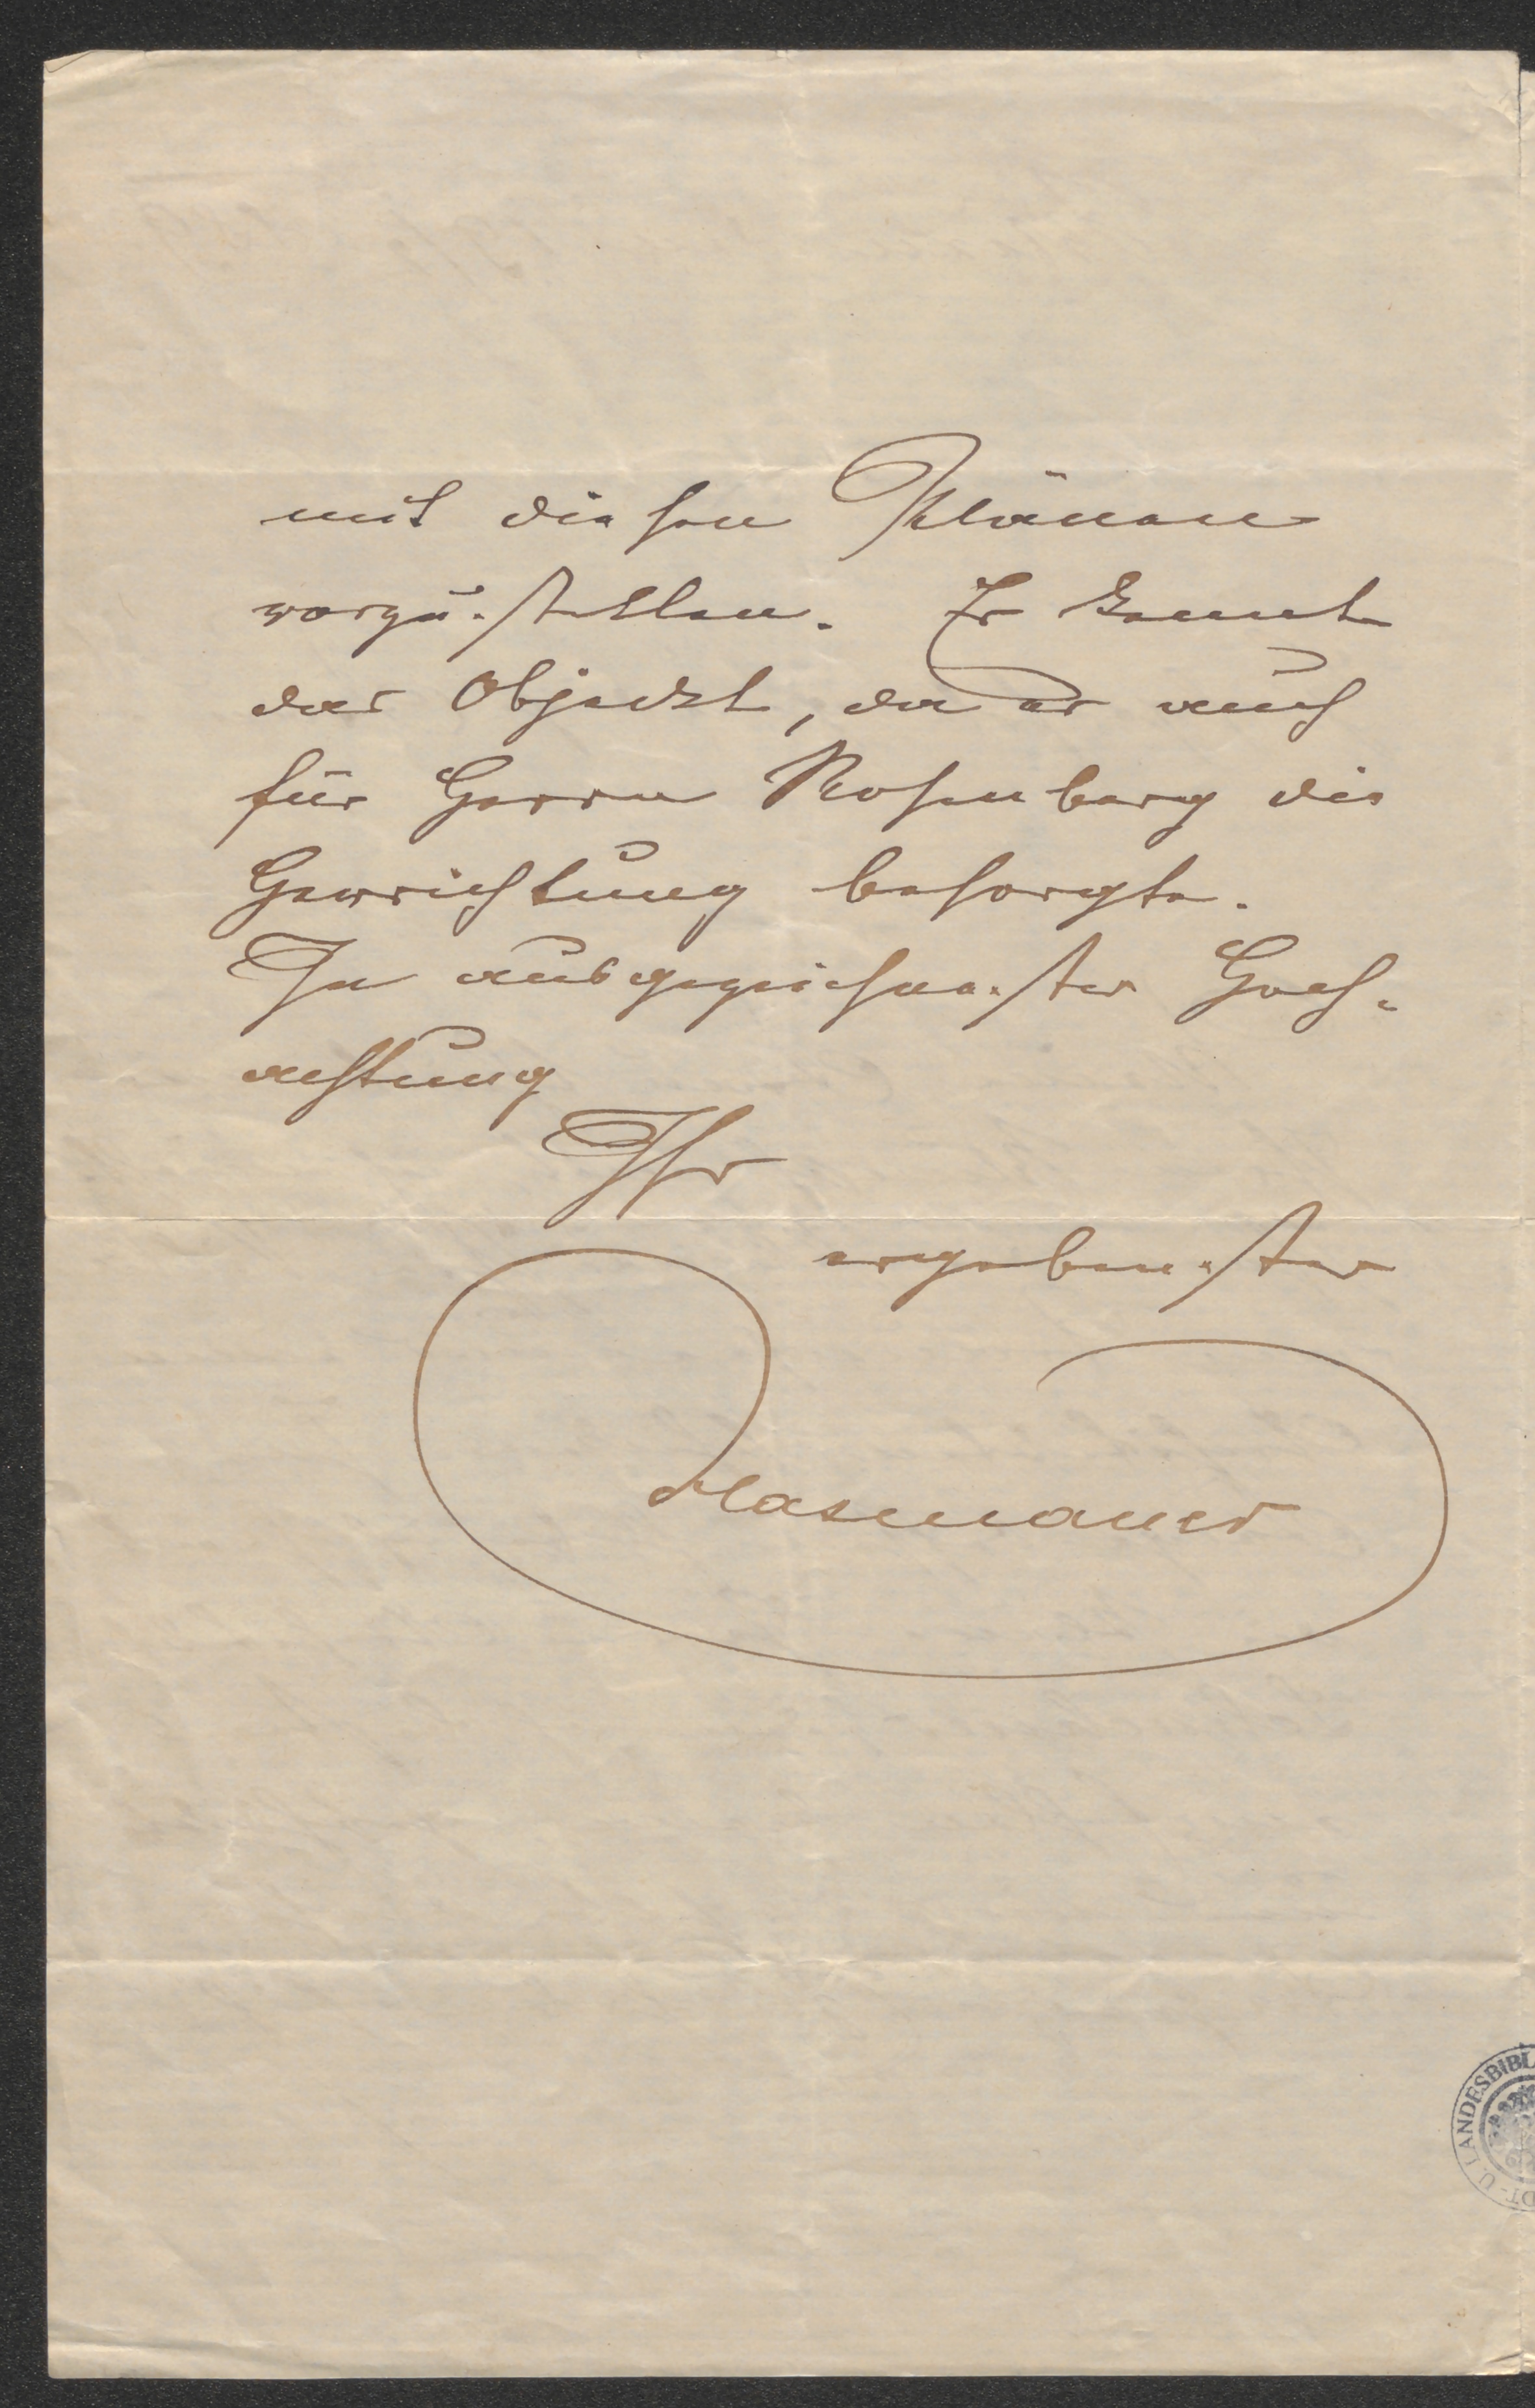 mit diesen Plänen
vorzustellen. Er kennt
das Objeckt, da er auch
für Herrn Rosenberg die
Herrichtung besorgte.
In ausgezeichnester Hoch-
achtung
Ihr
ergebenster
Hasenauer
LANDESBIBL